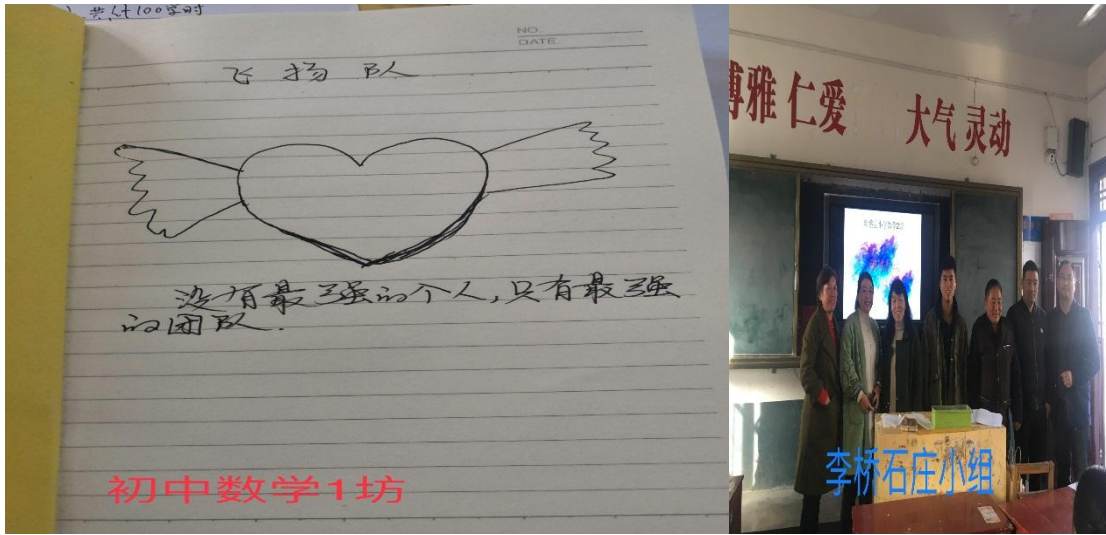 共计100字时
NO.
DATE.
飞扬队
没有最强的个人,只有最强
的团队.
初中数学1坊
博雅仁爱 大气灵动
李桥石庄小组